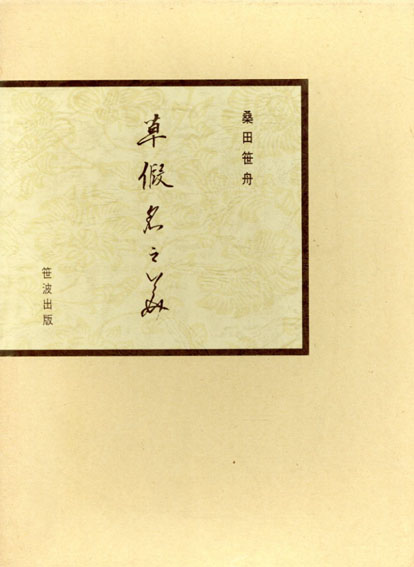 桑田笹舟
草假名之美
笹波出版